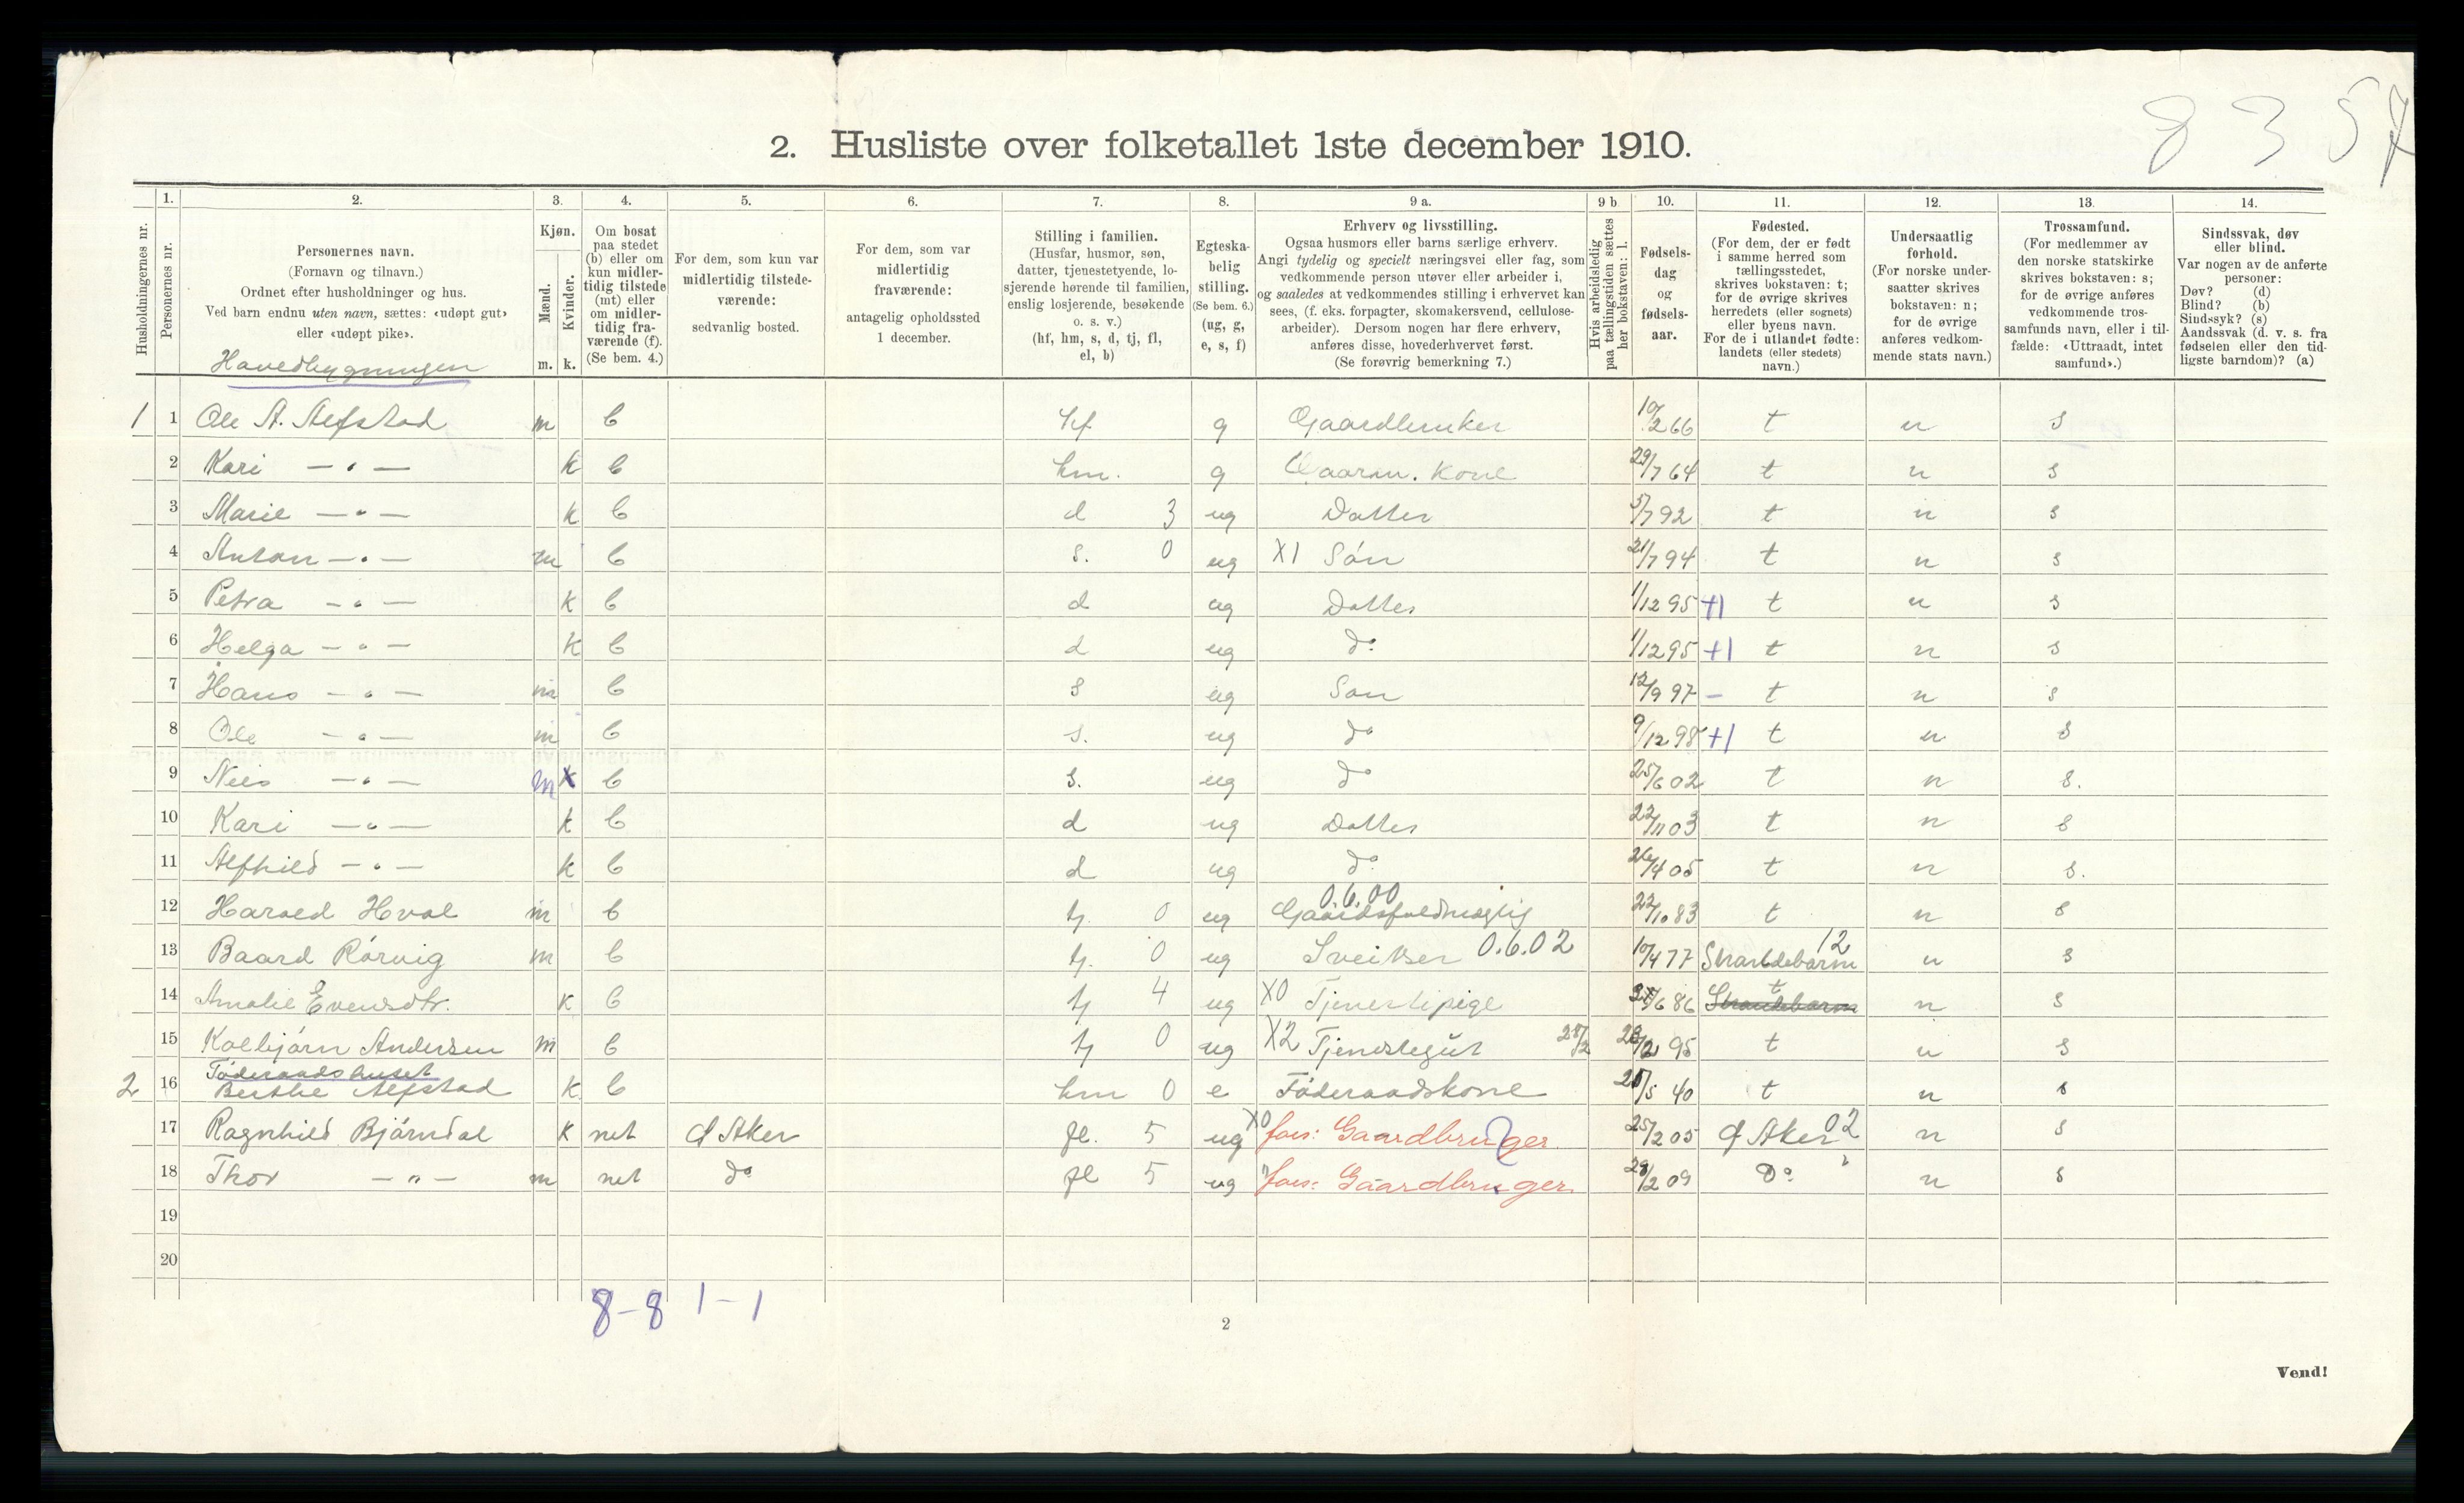 8 3 57
2. Husliste over folketallet 1ste december 1910.
Husholdningernes nr.
1.
Personernes nr.
2.
Personernes navn.
(Fornavn og tilnavn.)
Ordnet efter husholdninger og hus.
Ved barn endnu uten navn, sættes: «udøpt gut»
eller «udøpt pike».
Hovedbygningen
3.
Kjøn.
Mænd.
Kvinder.
m. k.
4.
Om bosat
paa stedet
(b) eller om
kun midler-
tidig tilstede
(mt) eller
om midler-
tidig fra-
værende (f).
(Se bem. 4.)
5.
For dem, som kun var
midlertidig tilstede-
værende:
sedvanlig bosted.
6.
For dem, som var
midlertidig
fraværende:
antagelig opholdssted
1 december.
7.
Stilling i familien.
(Husfar, husmor, søn,
datter, tjenestetyende, lo-
sjerende hørende til familien,
enslig losjerende, besøkende
o. s. v.)
(hf, hm, s, d, tj, fl,
el, b)
8.
Egteska-
belig
stilling.
(Se bem. 6.)
(ug, g,
e, s, f)
9 a.
Erhverv og livsstilling.
Ogsaa husmors eller barns særlige erhverv.
Angi tydelig og specielt næringsvei eller fag, som
vedkommende person utøver eller arbeider i,
og saaledes at vedkommendes stilling i erhvervet kan
sees, (f. eks. forpagter, skomakersvend, cellulose-
arbeider). Dersom nogen har flere erhverv,
anføres disse, hovederhvervet først.
(Se forøvrig bemerkning 7.)
9 b
Hvis arbeidsledig
paa tællingstiden sættes
her bokstaven: l.
10.
Fødsels-
dag
og
fødsels-
aar.
11.
Fødested.
(For dem, der er født
i samme herred som
tællingsstedet,
skrives bokstaven: t;
for de øvrige skrives
herredets (eller sognets)
eller byens navn.
For de i utlandet fødte:
landets (eller stedets)
navn.)
12.
Undersaatlig
forhold.
(For norske under-
saatter skrives
bokstaven: n;
for de øvrige
anføres vedkom-
mende stats navn.)
13.
Trossamfund.
(For medlemmer av
den norske statskirke
skrives bokstaven: s;
for de øvrige anføres
vedkommende tros-
samfunds navn, eller i til-
fælde: «Uttraadt, intet
samfund».)
14.
Sindssvak, døv
eller blind.
Var nogen av de anførte
personer:
Døv? (d)
Blind? (b)
Sindssyk? (s)
Aandssvak (d. v. s. fra
fødselen eller den tid-
ligste barndom)? (a)
1 1 Ole A. Alfstad m b hf g Gaardbruker 10/2 66 t n s
2 Kari — „ — k b hm. g Gaarm. Kone 29/7 64 t n s
3 Marie — „ — k b d 3 ug Datter 5/7 92 t n s
4 Anton — „ — m b s. 0 ug X1 Søn 21/7 94 t n s
5 Petra — „ — k b d ug Datter 1/12 95 +1 t n s
6 Helga — „ — k b d ug do 1/12 95 +1 t n s
7 Hans — „ — m b s ug Søn 12/9 97 – t n s
8 Ole — „ — m b s. ug do 9/12 98 +1 t n s
9 Nils — „ — m k b s. ug do 25/6 02 t n s.
10 Kari — „ — k b d ug Datter 22/11 03 t n s
11 Alfhild — „ — k b d ug do 26/4 05 t n s.
12 Harald Hval m b tj. 0 ug 0.6.00 Gaardsfuldmægtig 22/10 83 t n s
13 Baard Rörvig m b tj. 0 ug Sveitser 0.6.02 10/4 77 Strandebarm 12 n s
14 Amalie Evensdtr. k b tj 4 ug X0 Tjenestepige /6 86 Strandebarm t n s
15 Kolbjørn Andersen m b tj 0 ug X2 Tjenestegut 28/2 28/2 95 t n s
Föderaadshuset
2 16 Berthe Alfstad k b hm 0 e Föderaadskone /5 40 t n s
17 Ragnhild Bjørndal k mt Ø Aker fl. 5 ug X0 fors: Gaardbruger 25/2 05 Ø Aker 02 n s
18 Thor — „ — m mt do fl 5 ug " fors: Gaardbruger 28/2 09 Do " n s
19
20
8 – 8 1 – 1
2
Vend!